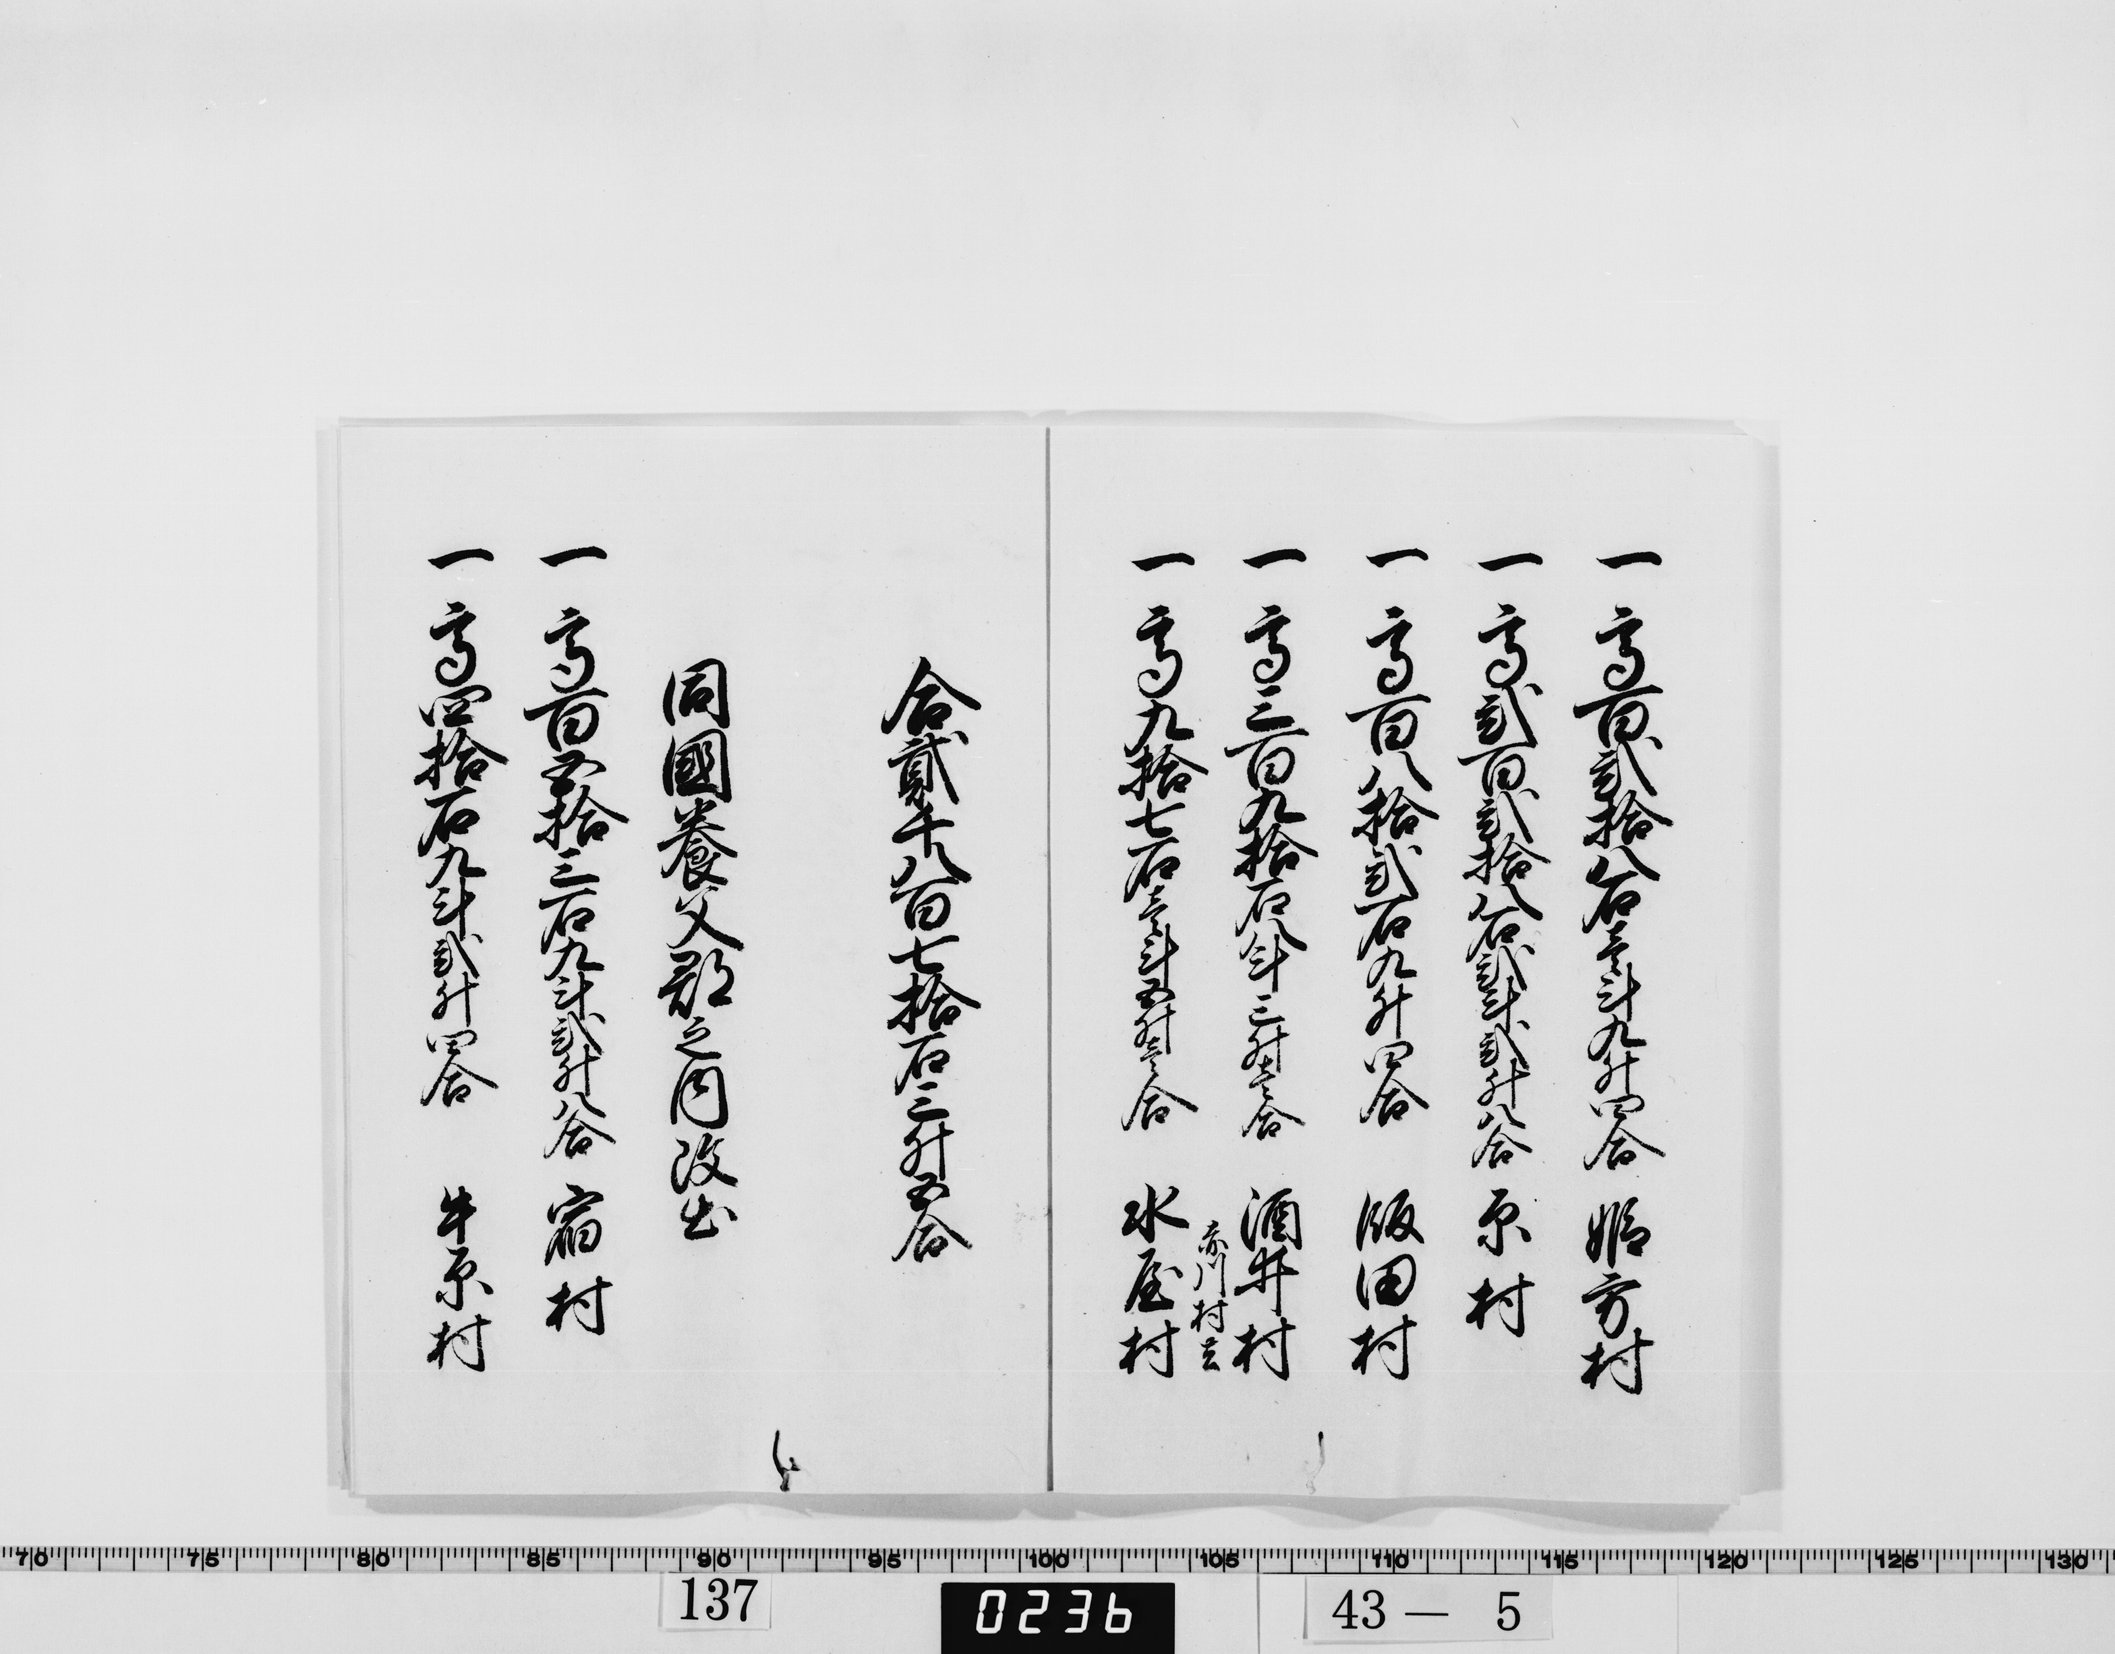 一高百貳拾八石壹斗九升四合 姫方村
一高貳百貳拾八石貳斗貳升八合 原村
一高百八拾貳石九升四合 飯田村
一高三百九拾石八斗三升壹合 酒井村
赤川村共
一高九拾七石壹斗五升壹合 水屋村
合貳千八百七拾石三升五合
同國養父郡之内改出
一高百五拾三石九斗貳升八合 宿村
一高四拾石九斗貳升四合 牛原村
70 75 80 85 90 95 100 105 110 115 120 125 130
137
0236
43 — 5